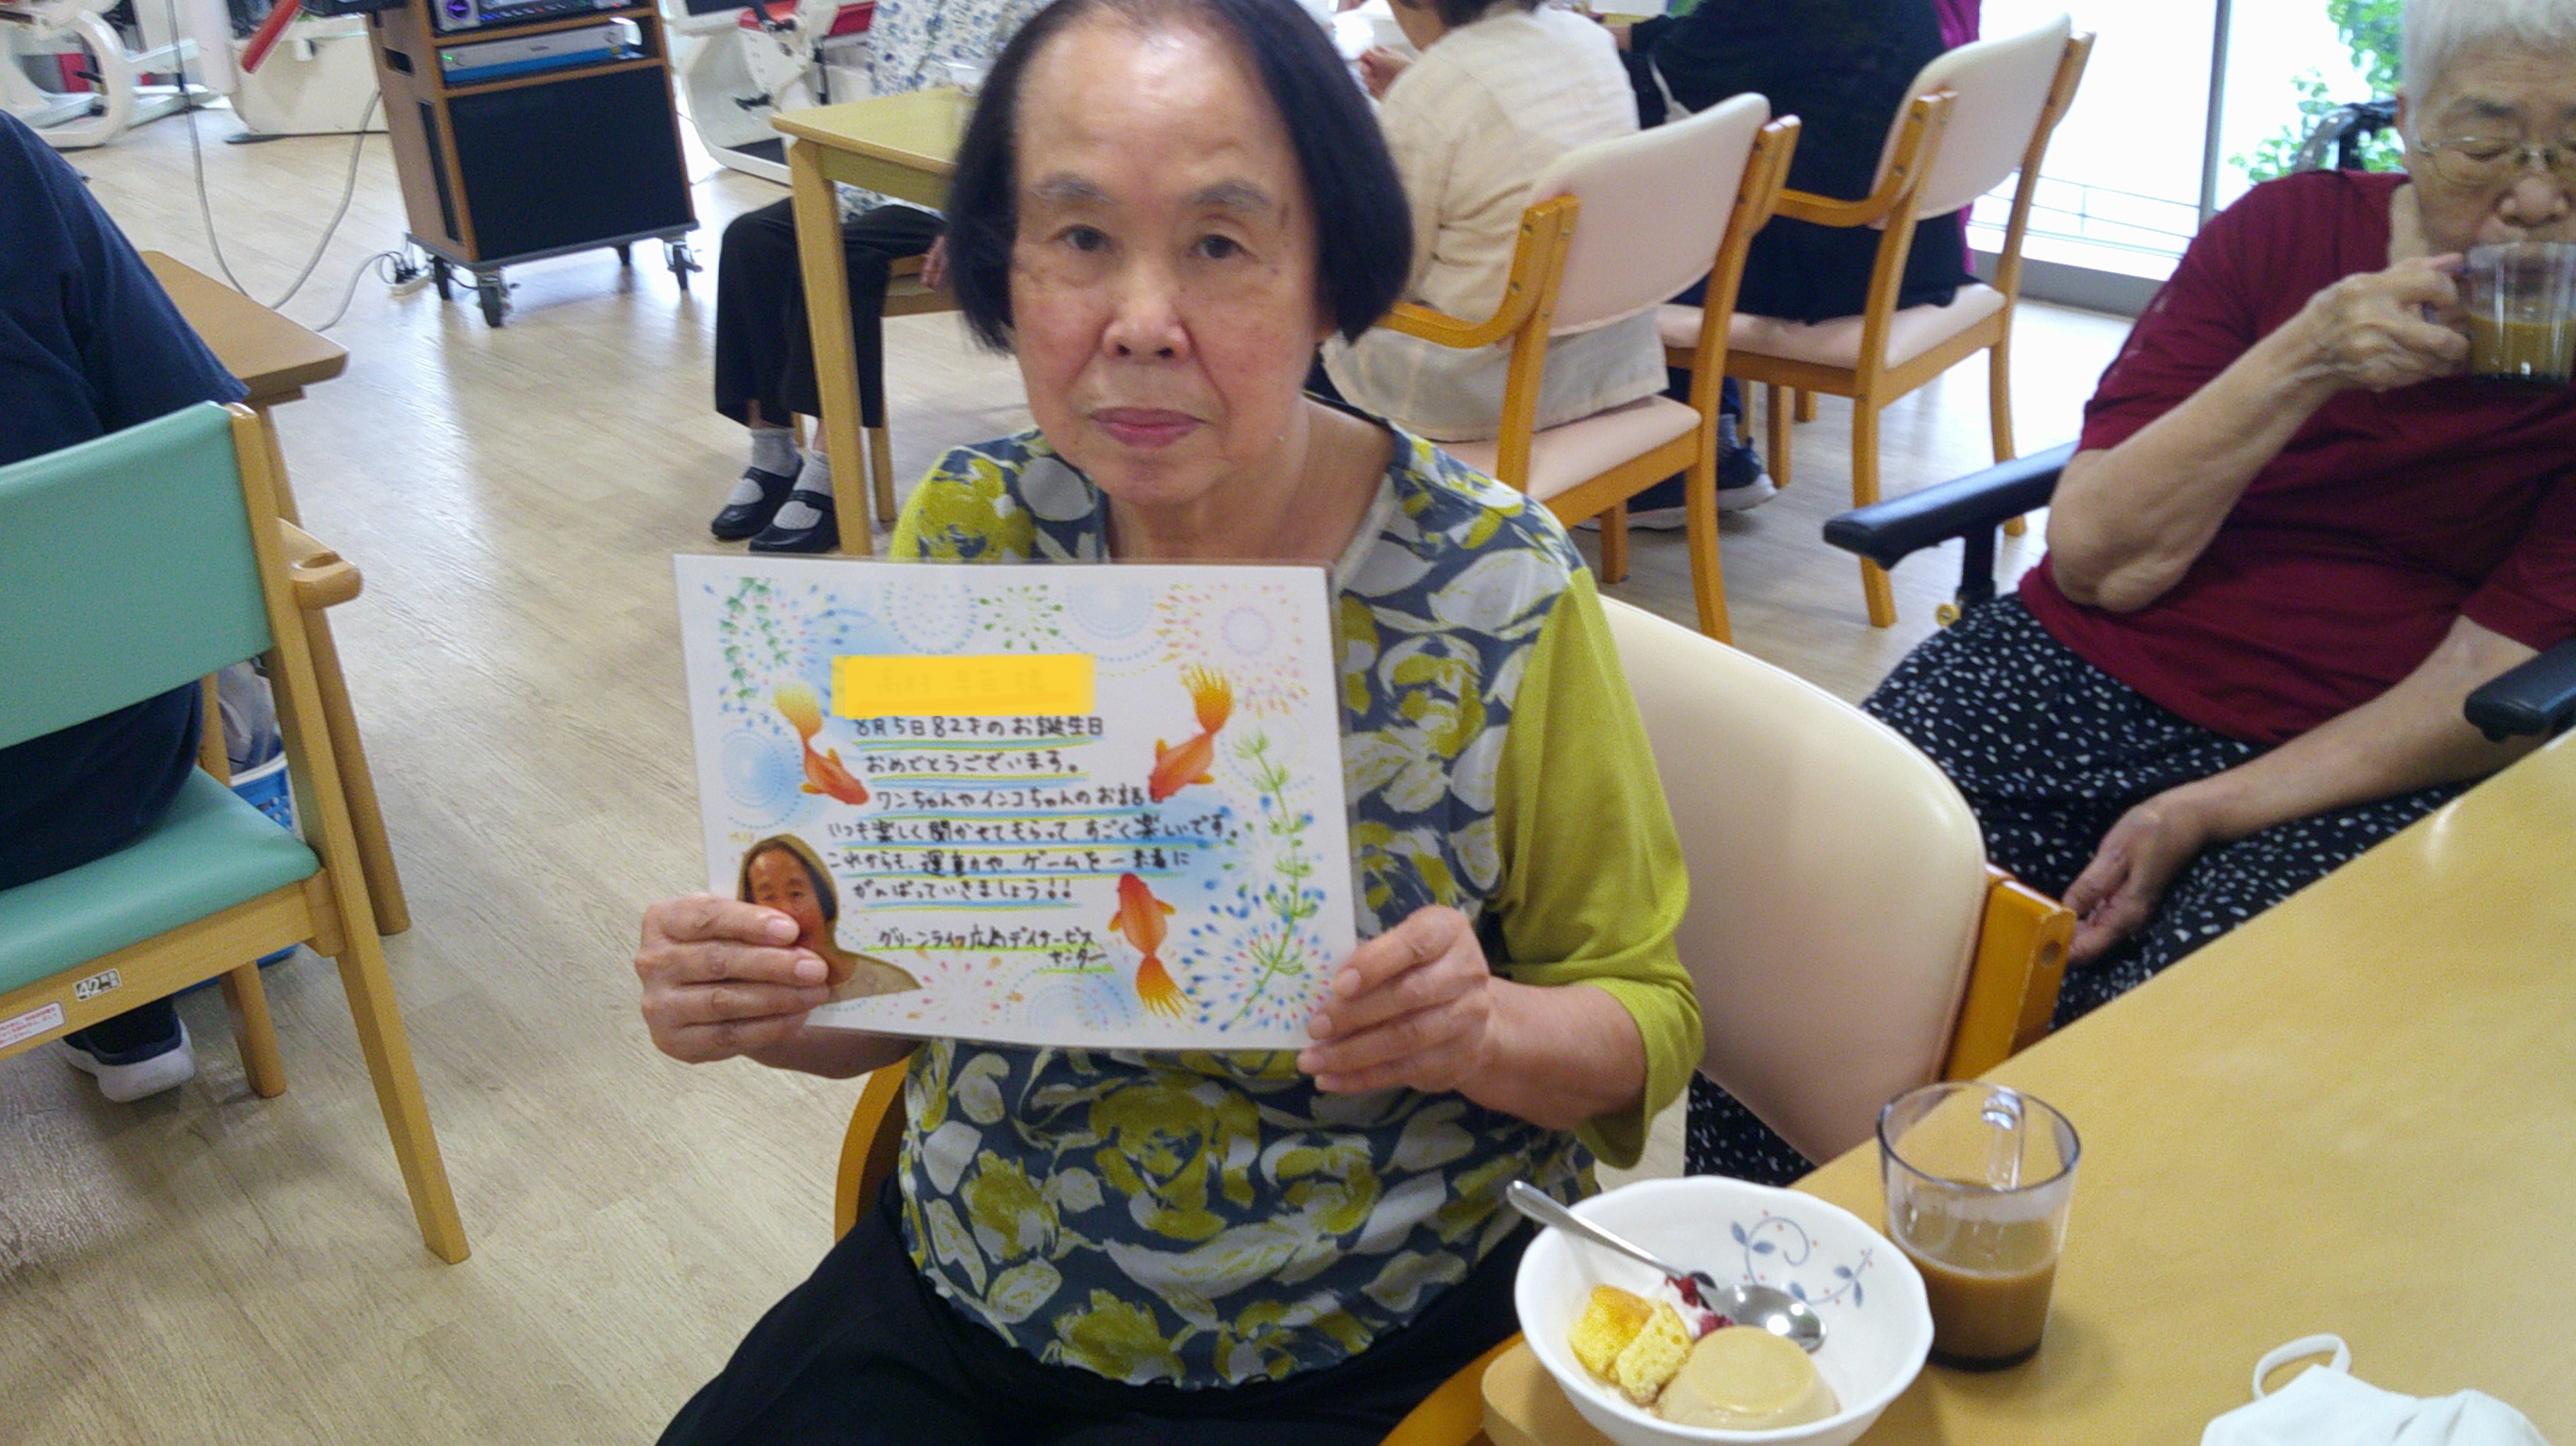 8月5日82才のお誕生日
おめでとうございます。
ワンちゃんやインコちゃんのお話も
いつも楽しく聞かせてもらって、すごく楽しいです。
これからも、運動や、ゲームを一緒に
がんばっていきましょう!!
グリーンライフ広島デイサービス
センター
42